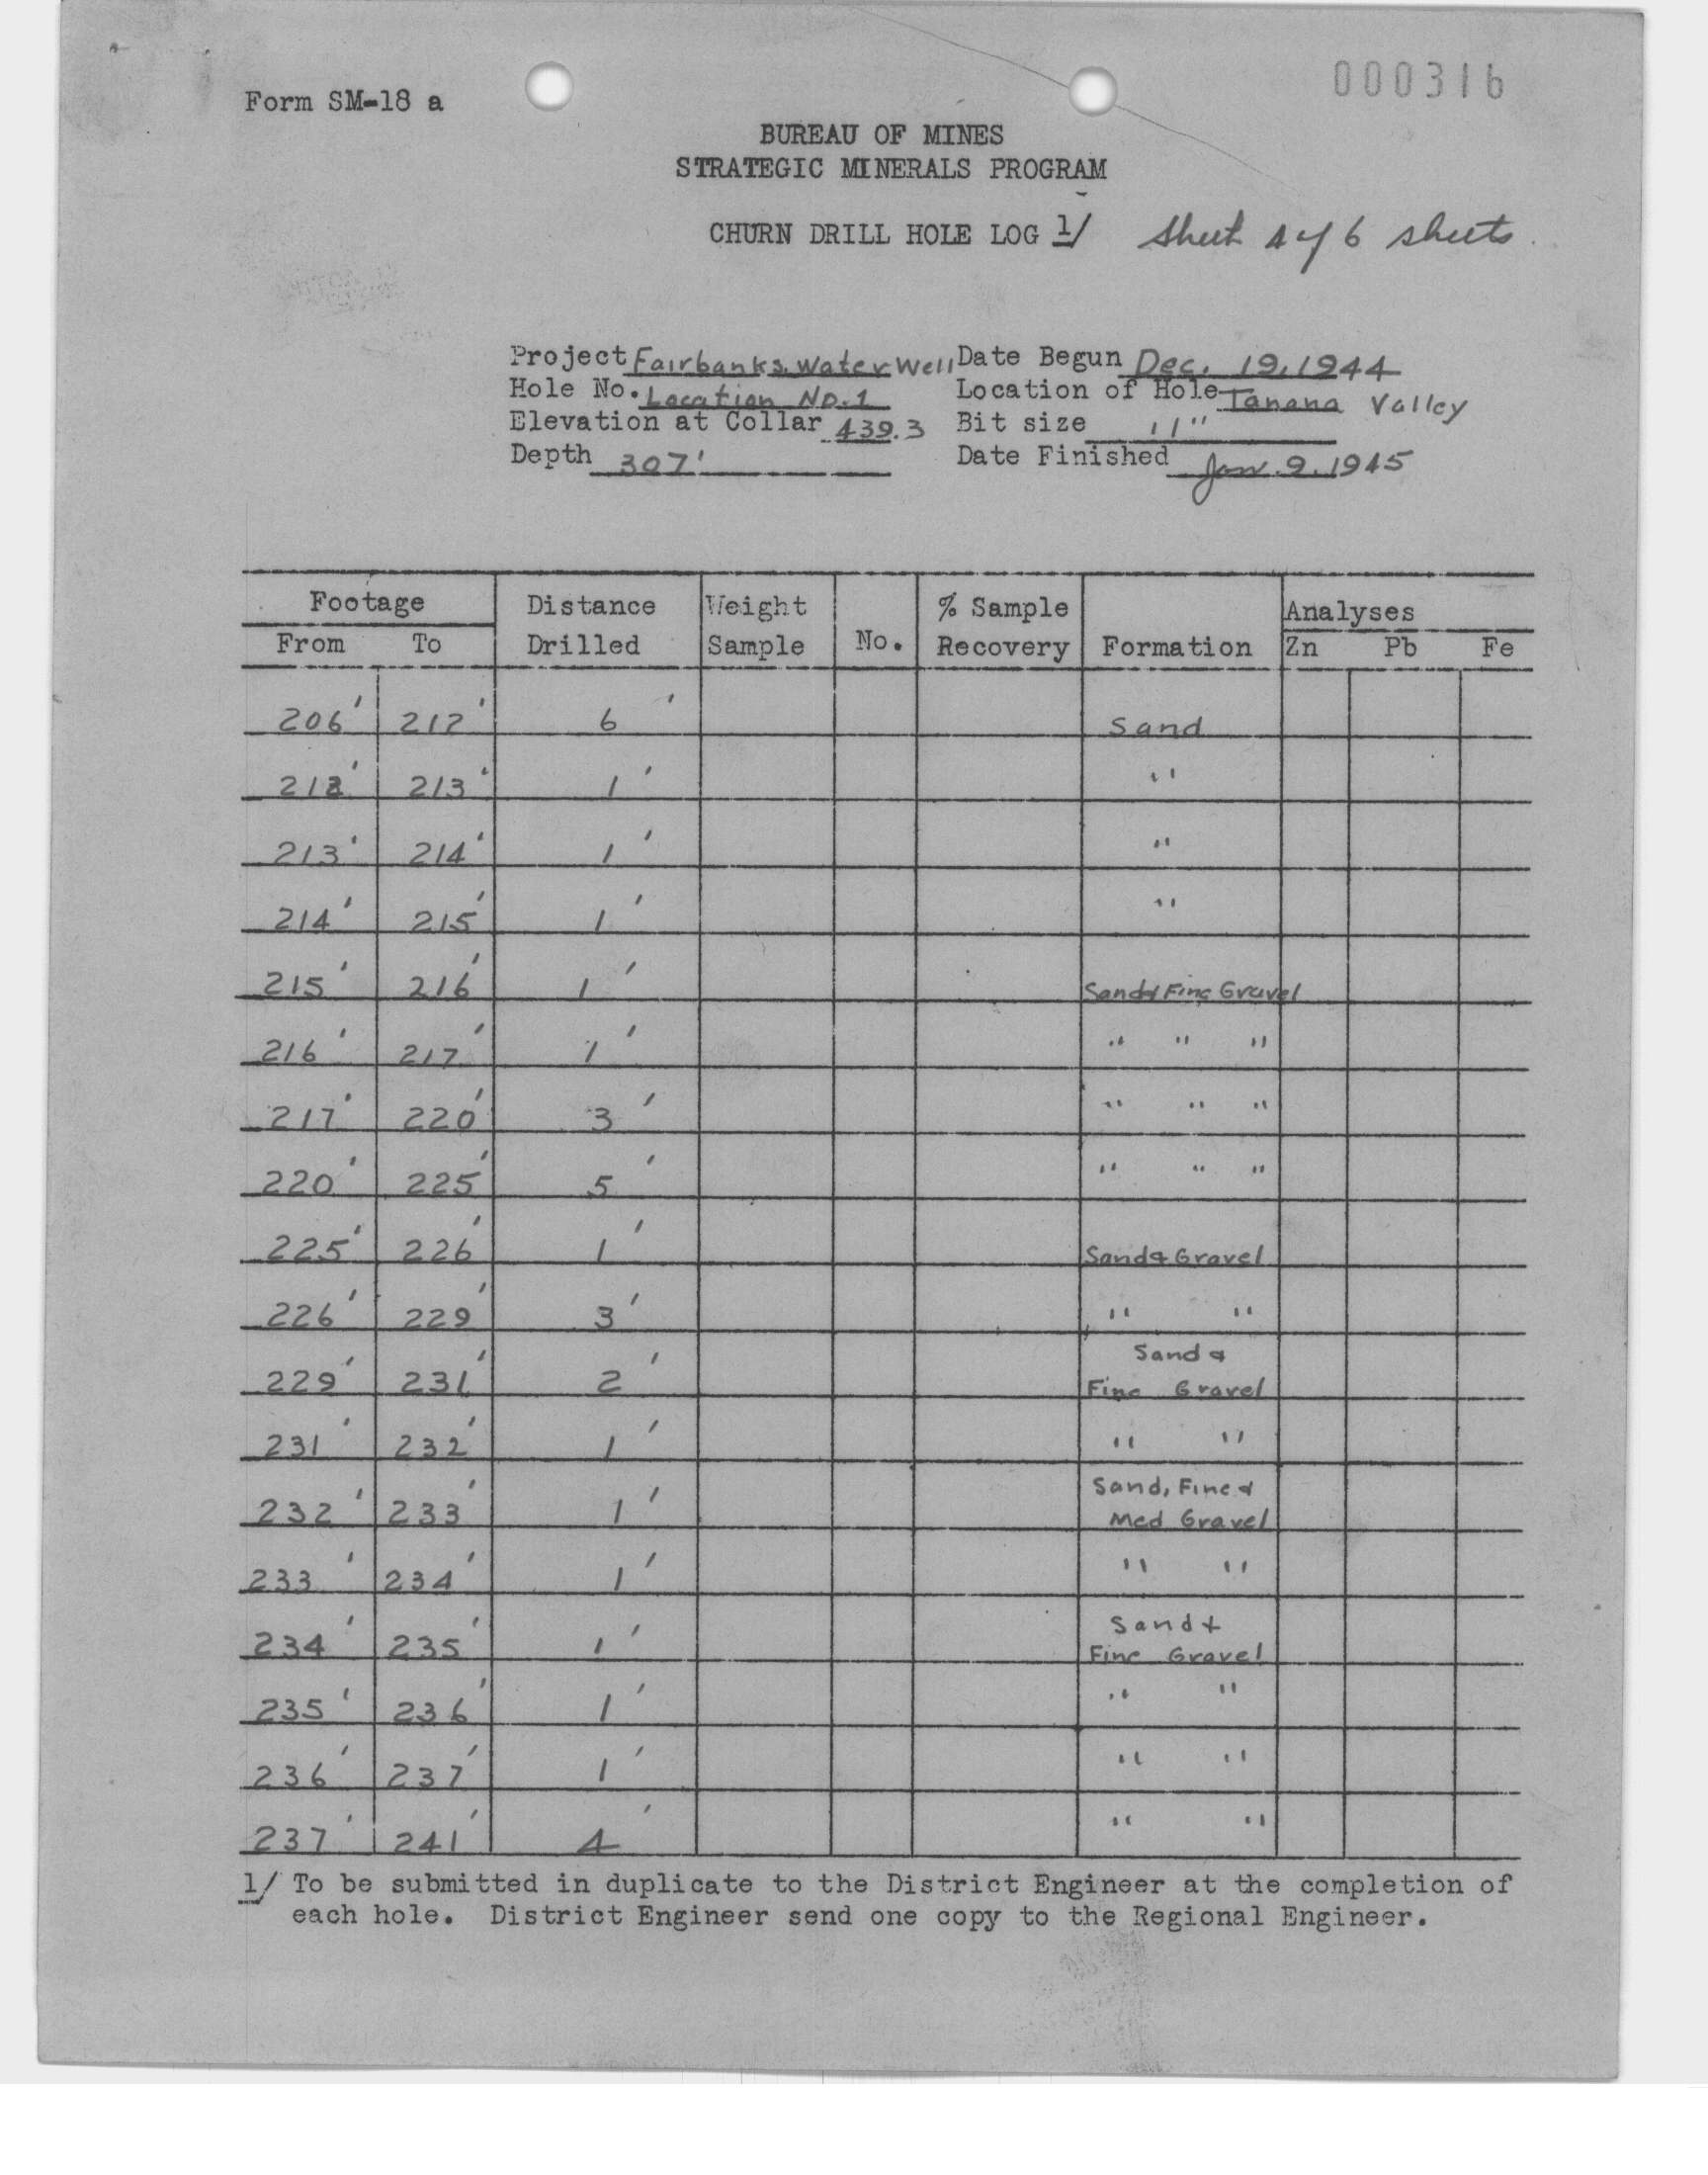 000316
Form SM-18 a
BUREAU OF MINES
STRATEGIC MINERALS PROGRAM
CHURN DRILL HOLE LOG 1/ Sheet 4 of 6 sheets
Project Fairbanks Water Well Date Begun Dec. 19, 1944
Hole No. Location No. 1 Location of Hole Tanana Valley
Elevation at Collar 439.3 Bit size 11"
Depth 307' Date Finished Jan. 9, 1945
Footage Distance Weight % Sample Analyses
From To Drilled Sample No. Recovery Formation Zn Pb Fe
206' 212' 6' Sand
212' 213' 1' "
213' 214' 1' "
214' 215' 1' "
215' 216' 1' Sand & Fine Gravel
216' 217' 1' " " "
217' 220' 3' " " "
220' 225' 5' " " "
225' 226' 1' Sand & Gravel
226' 229' 3' " "
Sand &
229' 231' 2' Fine Gravel
231' 232' 1' " "
Sand, Fine &
232' 233' 1' Med Gravel
233' 234' 1' " "
Sand &
234' 235' 1' Fine Gravel
235' 236' 1' " "
236' 237' 1' " "
237' 241' 4' " "
1/ To be submitted in duplicate to the District Engineer at the completion of
each hole. District Engineer send one copy to the Regional Engineer.